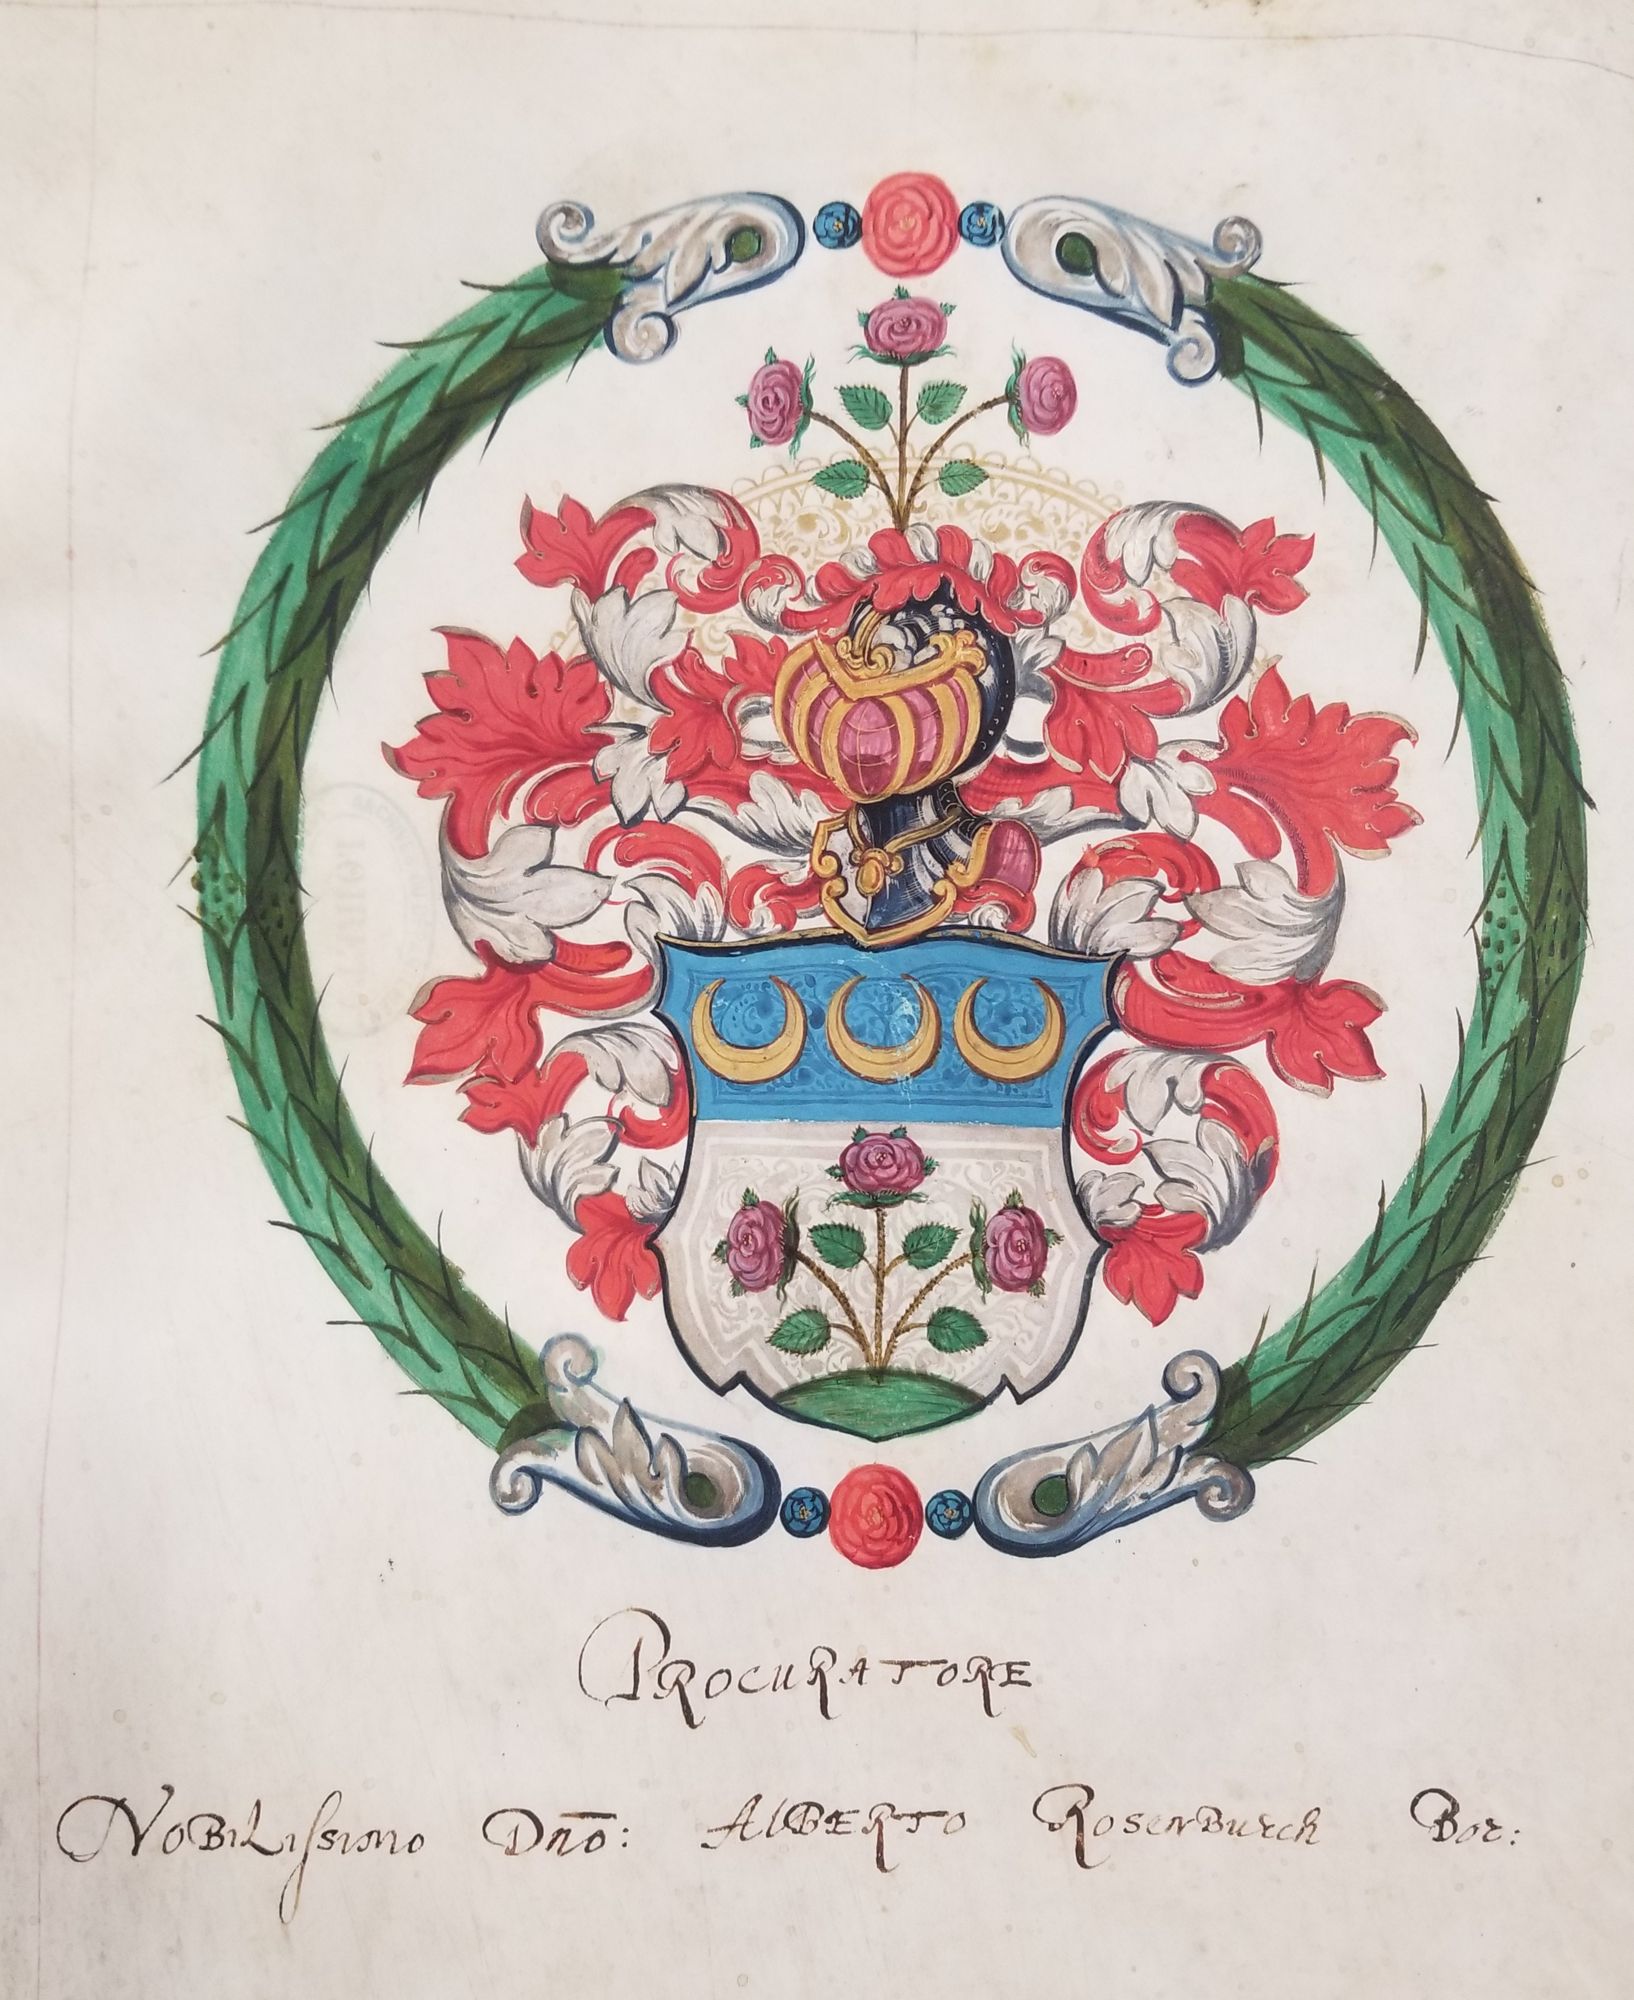 PROCURATORE
NOBILISSIMO Dn̄o: ALBERTO ROSENBURCH Bor: